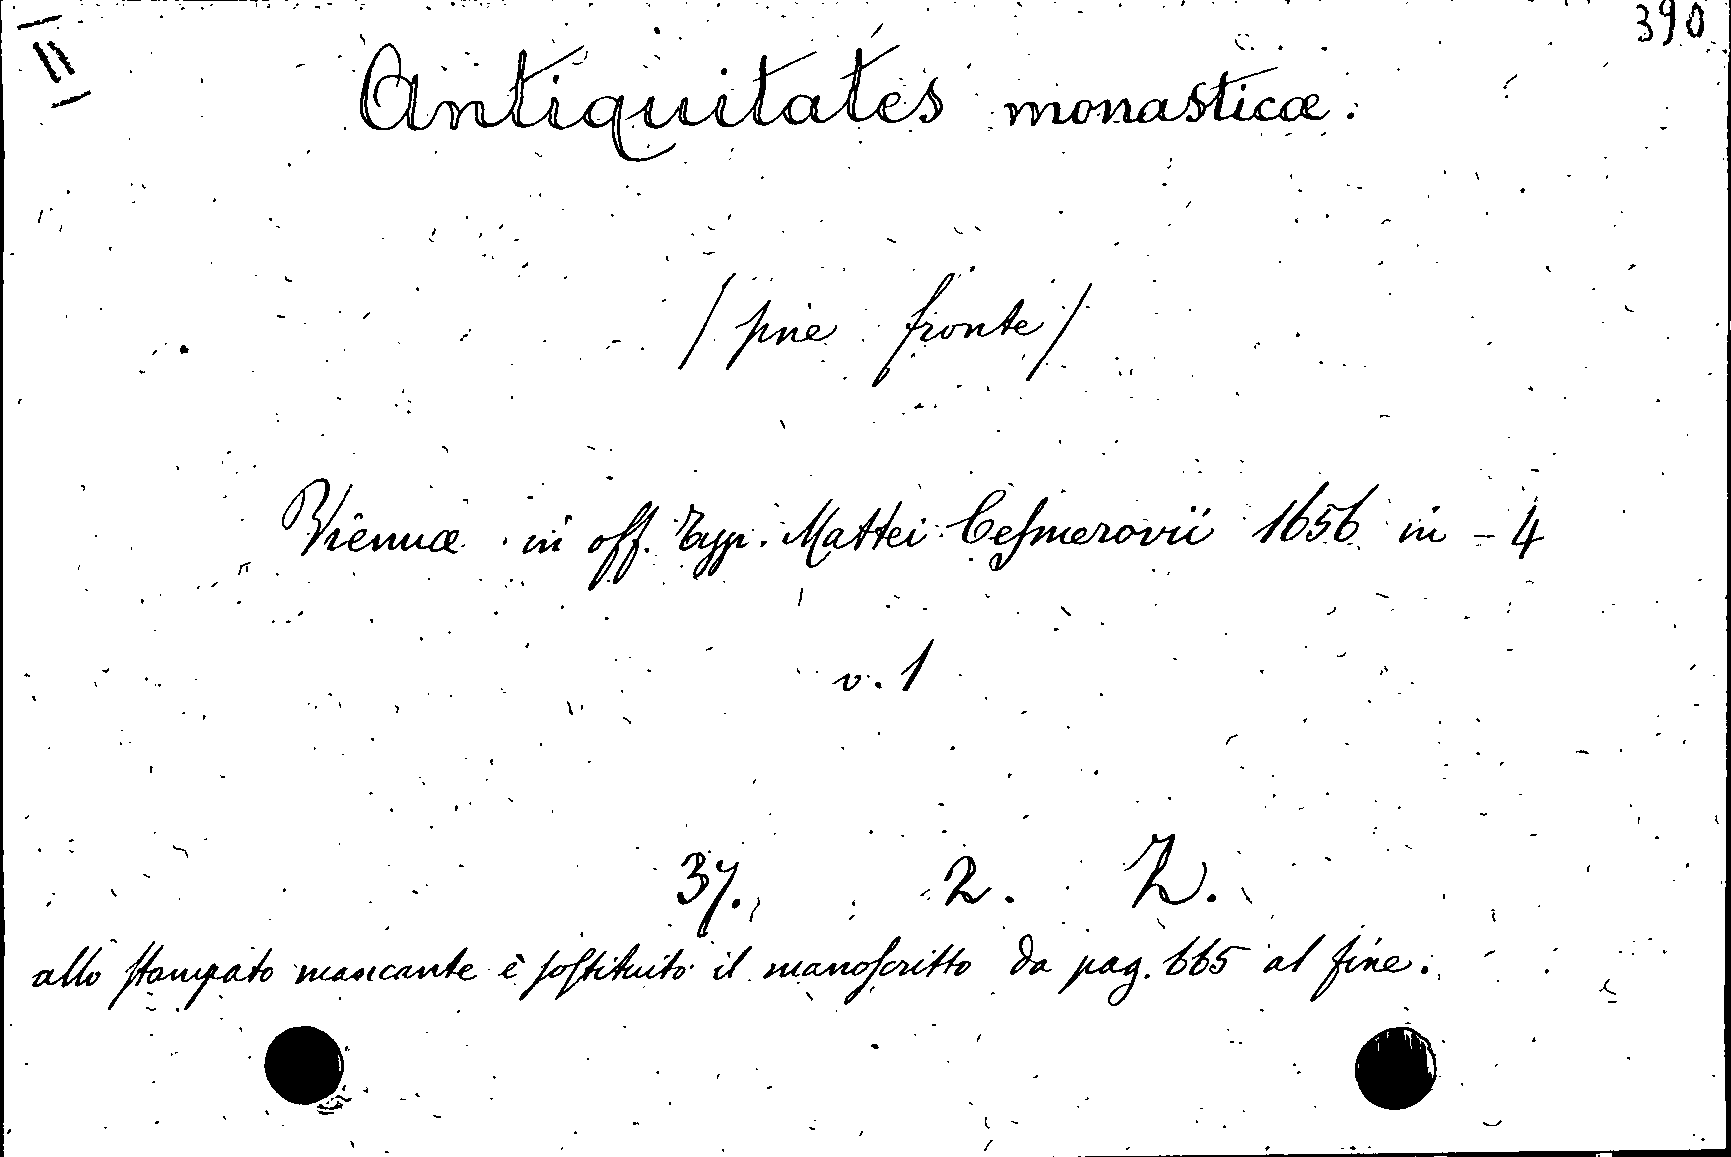 II
390
Antiquitates monasticæ.
/sine fronte/
Viennæ in off. Typ. Mattei Cesmerovii 1656 in-4
v. 1
37. 2. Z.
allo stampato mancante è sostituito il manoscritto da pag. 665 al fine.